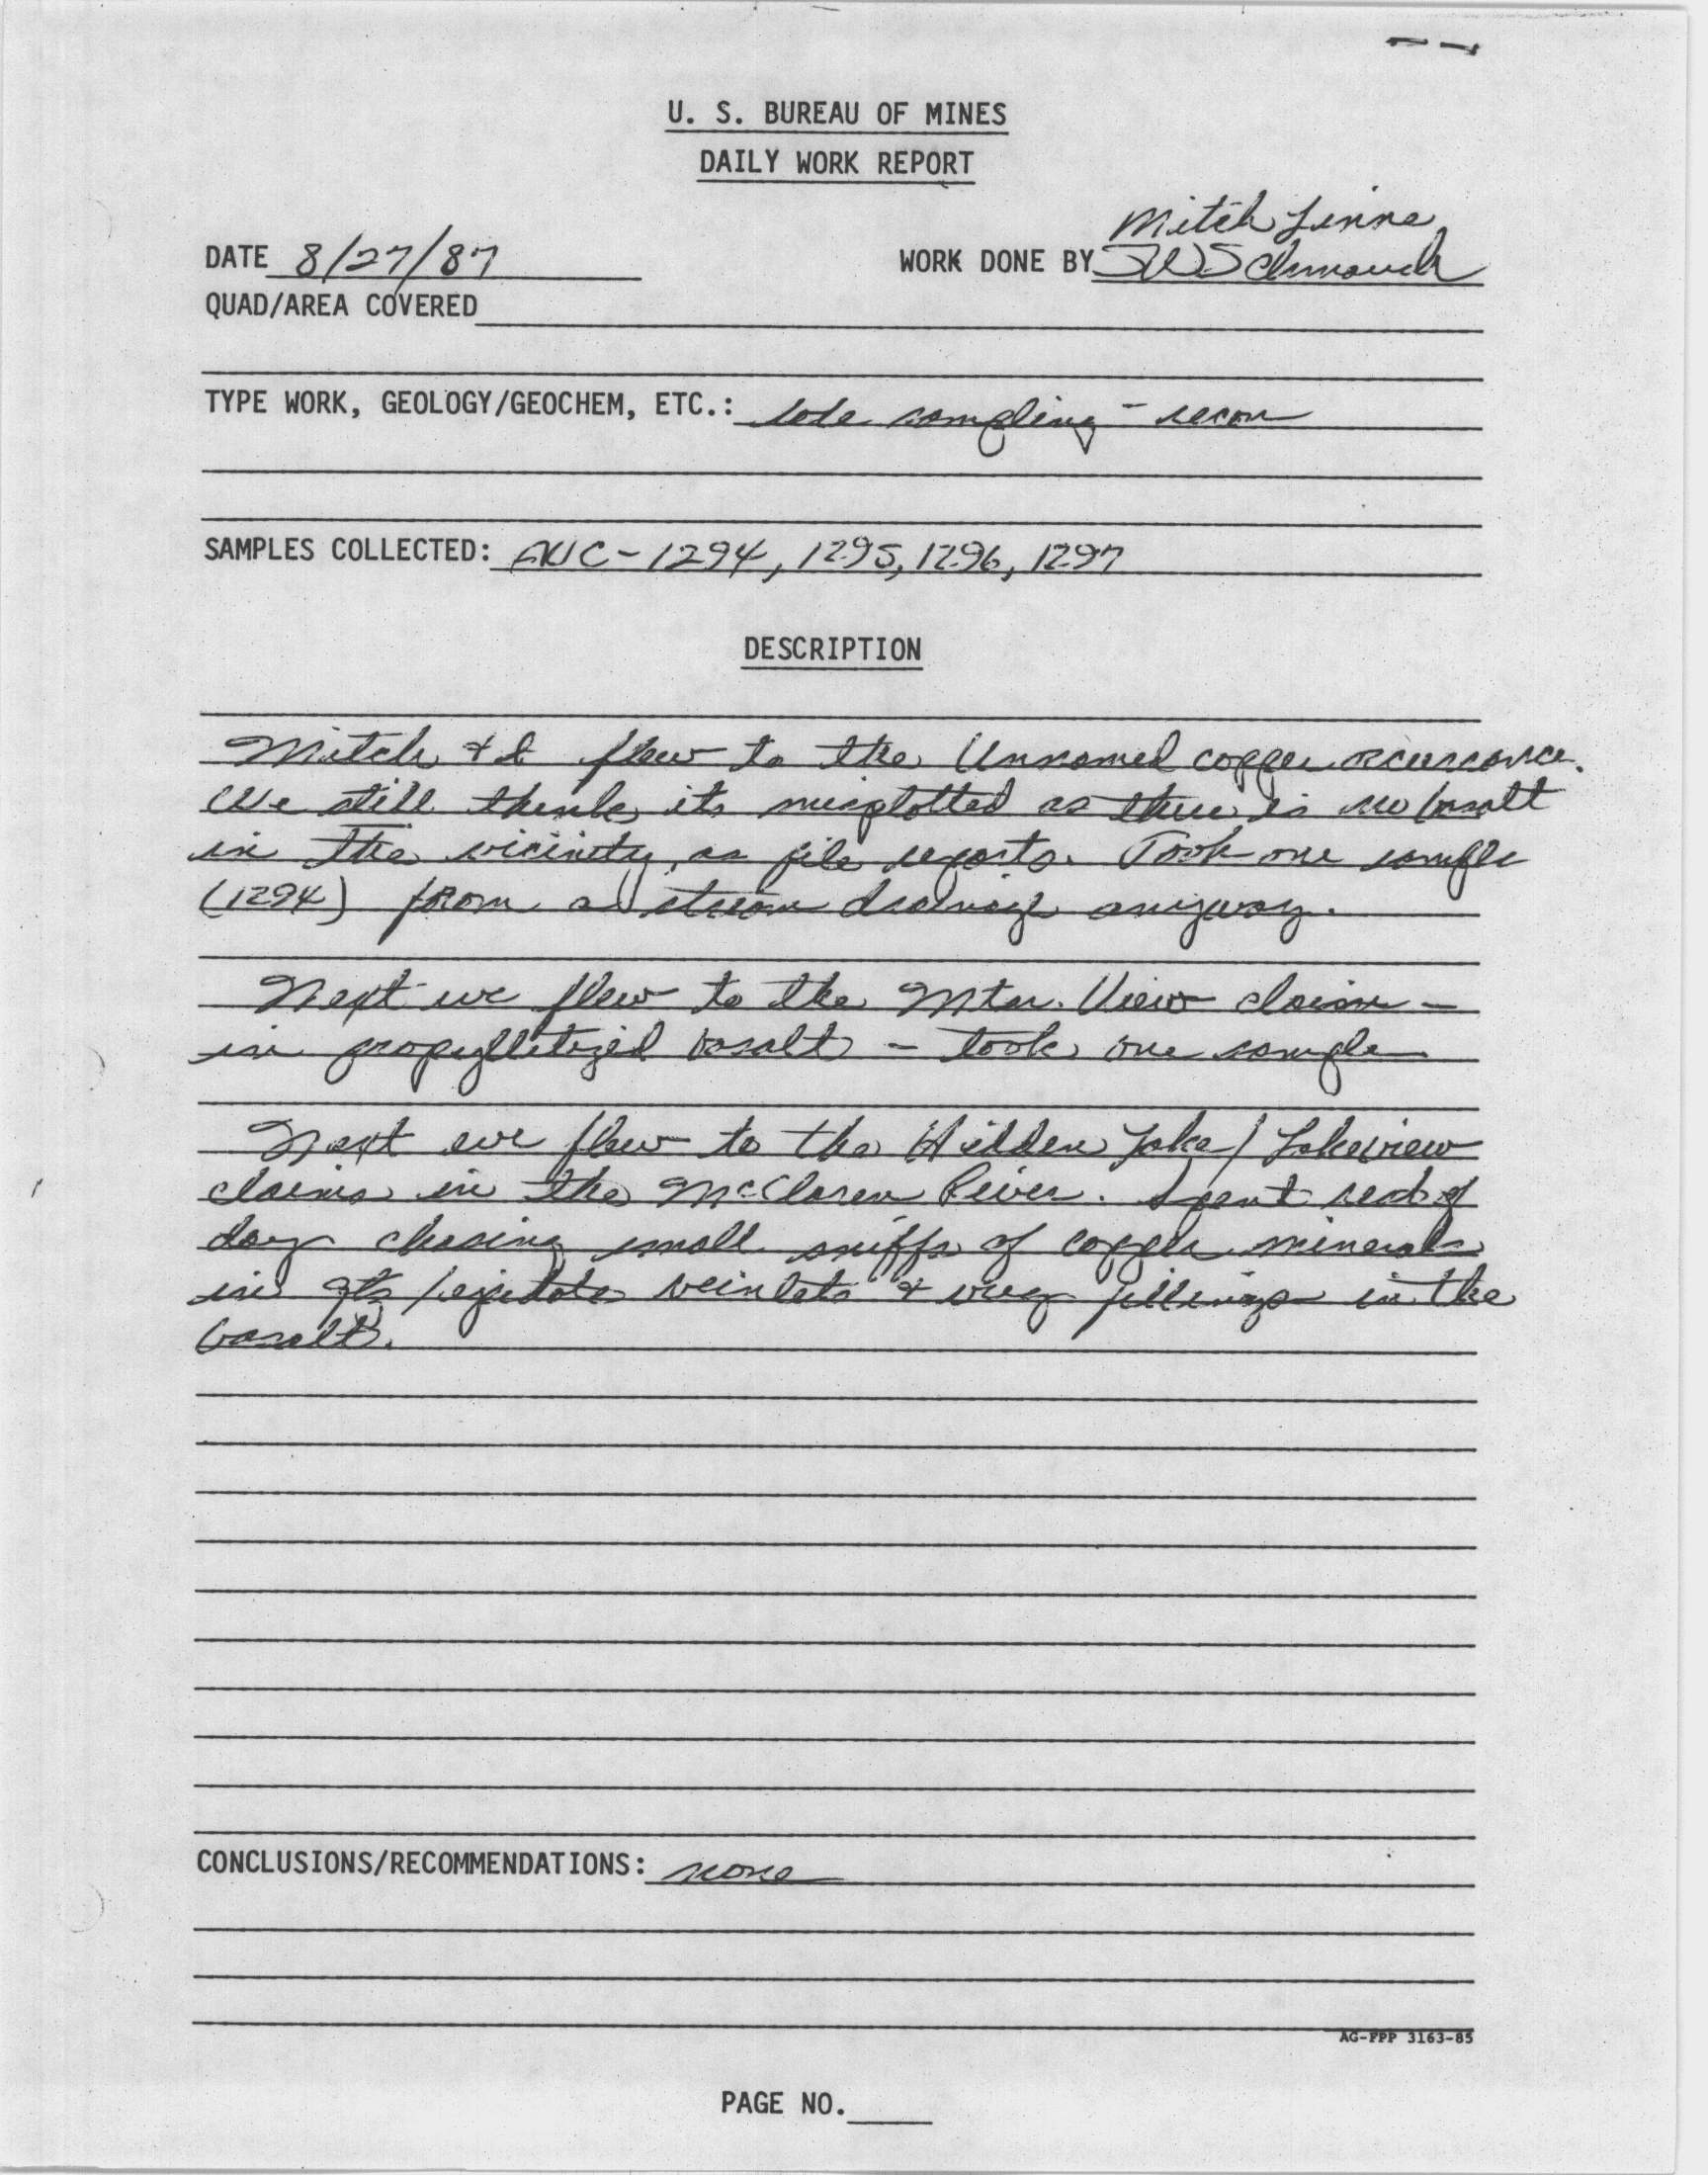 U. S. BUREAU OF MINES
DAILY WORK REPORT
Mitch Linne
DATE 8/27/87 WORK DONE BY SWSchmauch
QUAD/AREA COVERED
TYPE WORK, GEOLOGY/GEOCHEM, ETC.: lode sampling - recon
SAMPLES COLLECTED: 1294, 1295, 1296, 1297
DESCRIPTION
Mitch & I flew to the Unnamed copper occurrance.
We still think its misplotted as there is no basalt
in the vicinity, as file reports. Took one sample
(1294) from a stream drainage anyway.
Next we flew to the Mtn. View claim -
in propyllitized basalt - took one sample
Next we flew to the Hidden Lake/Lakeview
claims in the McClaren River. Spent rest of
day chasing small sniffs of copper minerals
in qtz/epidote veinlets & vug fillings in the
basalt.
CONCLUSIONS/RECOMMENDATIONS: none
AG-FPP 3163-85
PAGE NO.